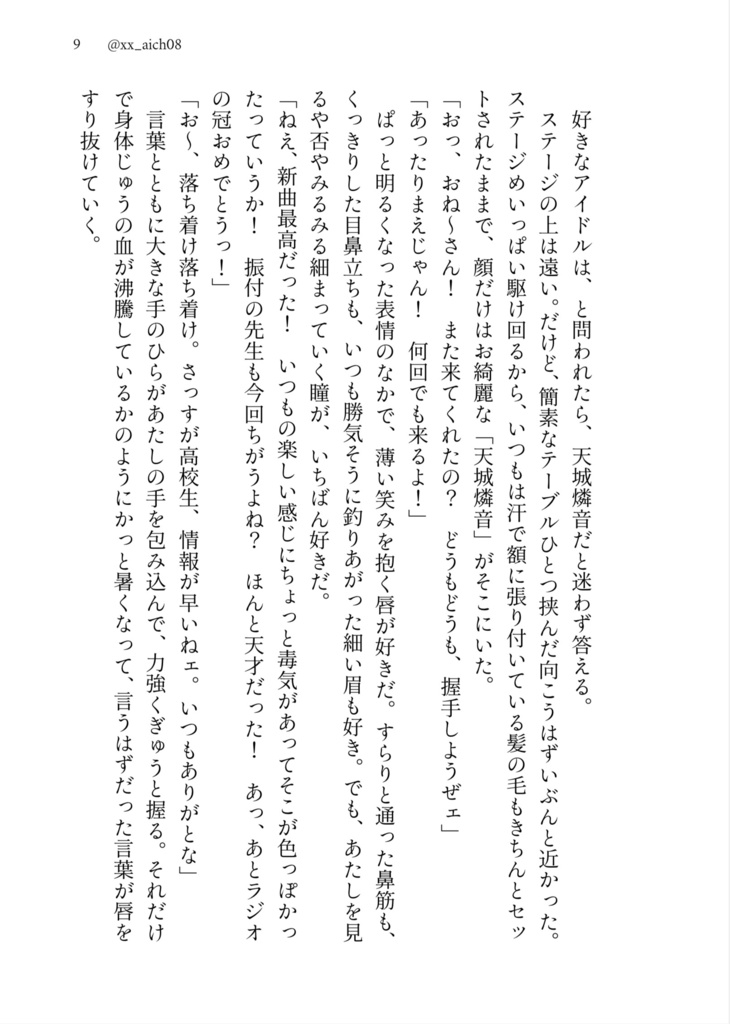 9 @xx_aich08
　好きなアイドルは、と問われたら、天城燐音だと迷わず答える。
　ステージの上は遠い。だけど、簡素なテーブルひとつ挟んだ向こうはずいぶんと近かった。
ステージめいっぱい駆け回るから、いつもは汗で額に張り付いている髪の毛もきちんとセッ
トされたままで、顔だけはお綺麗な「天城燐音」がそこにいた。
「おっ、おね〜さん！　また来てくれたの？　どうもどうも、握手しようぜェ」
「あったりまえじゃん！　何回でも来るよ！」
　ぱっと明るくなった表情のなかで、薄い笑みを抱く唇が好きだ。すらりと通った鼻筋も、
くっきりした目鼻立ちも、いつも勝気そうに釣りあがった細い眉も好き。でも、あたしを見
るや否やみるみる細まっていく瞳が、いちばん好きだ。
「ねえ、新曲最高だった！　いつもの楽しい感じにちょっと毒気があってそこが色っぽかっ
たっていうか！　振付の先生も今回ちがうよね？　ほんと天才だった！　あっ、あとラジオ
の冠おめでとうっ！」
「お〜、落ち着け落ち着け。さっすが高校生、情報が早いねェ。いつもありがとな」
　言葉とともに大きな手のひらがあたしの手を包み込んで、力強くぎゅうと握る。それだけ
で身体じゅうの血が沸騰しているかのようにかっと暑くなって、言うはずだった言葉が唇を
すり抜けていく。